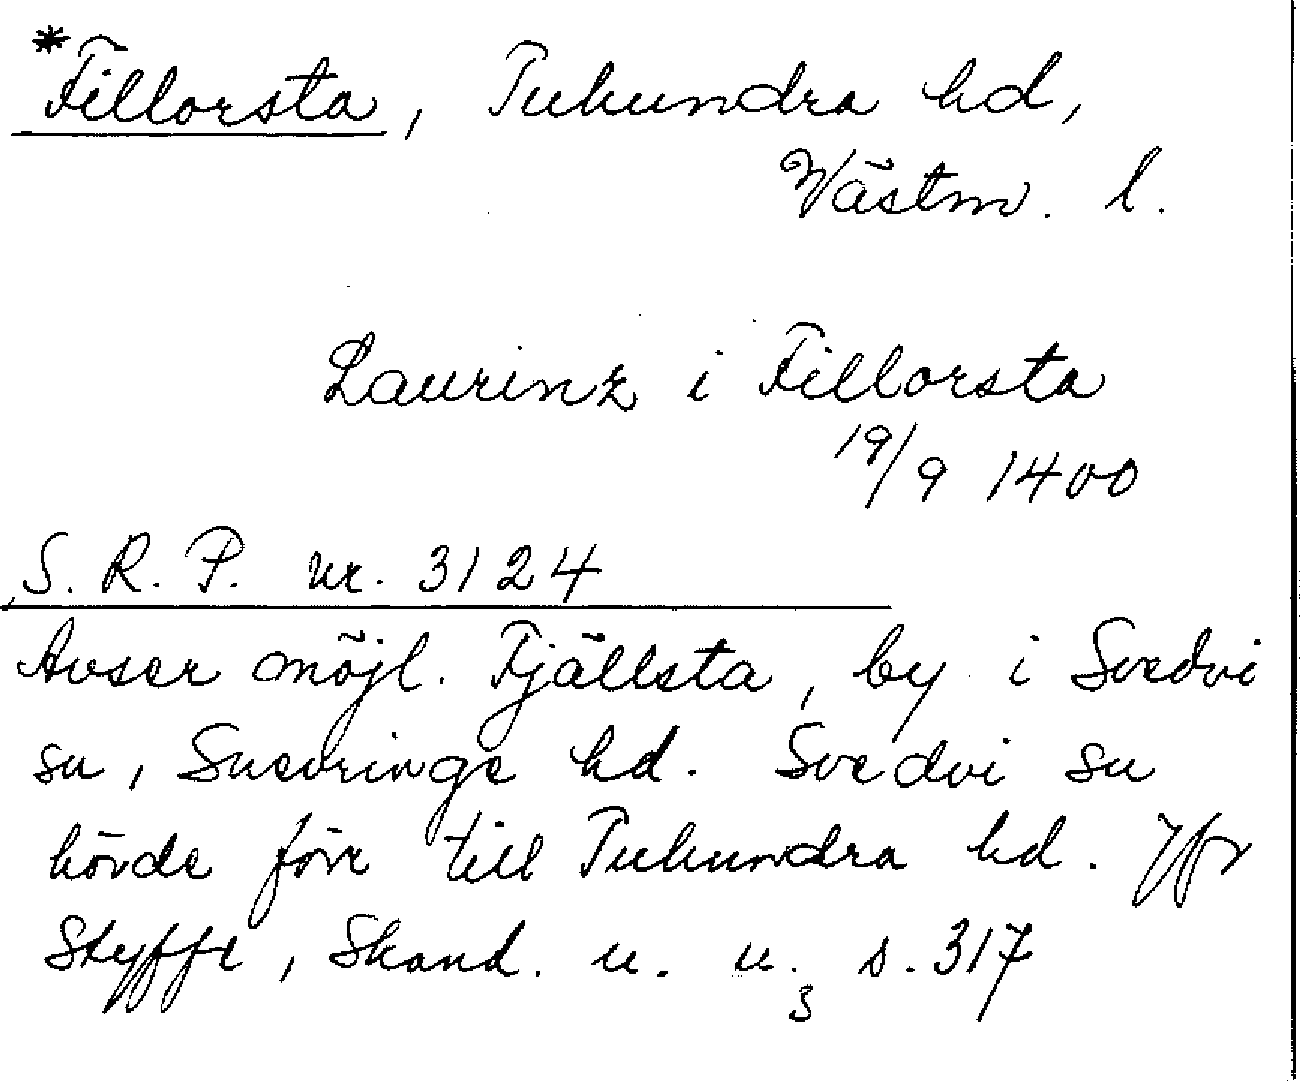 *Fillorsta, Tuhundra hd,
Västm. l.
Laurinz i Fillorsta
19/9 1400
S. R. P. nr. 3124
Avser möjl. Fjällsta, by i Svedvi
sn, Snevringe hd. Svedvi sn
hövde förr till Tuhundra hd. Jfr
Styffe, Skand. u. u.3 s. 317